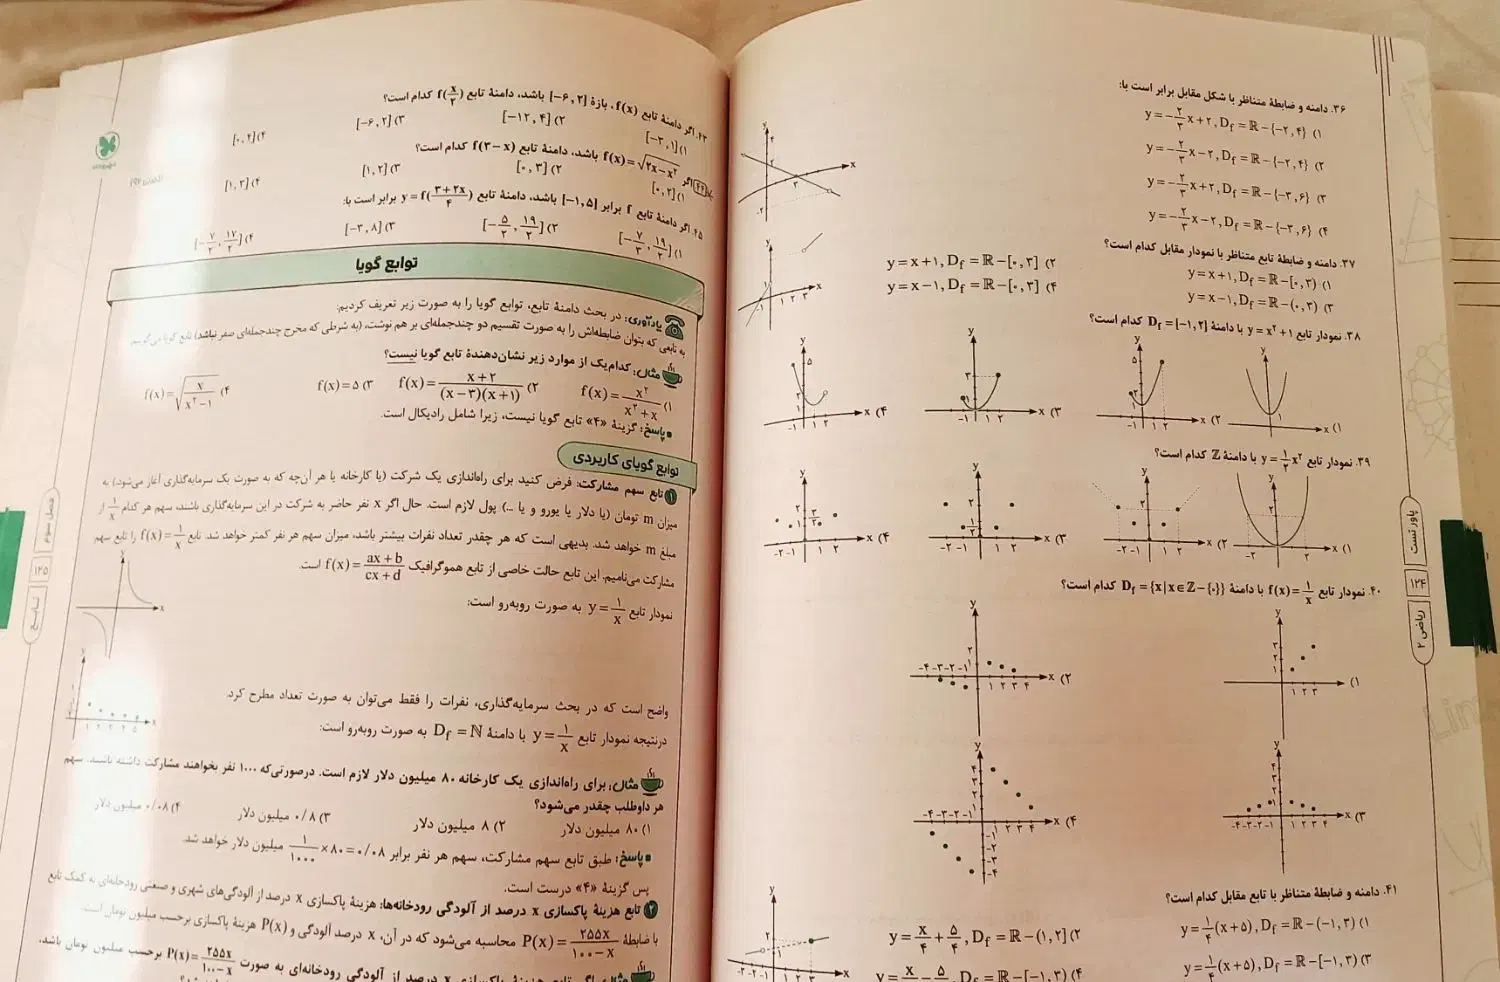 ۳۶. دامنه و ضابطهٔ متناظر با شکل مقابل برابر است با:
۱) y = −۲/۳ x + ۲, D_f = ℝ − {−۲, ۴}
۲) y = −۲/۳ x − ۲, D_f = ℝ − {−۲, ۴}
۳) y = −۲/۳ x + ۲, D_f = ℝ − {−۳, ۶}
۴) y = −۲/۳ x − ۲, D_f = ℝ − {−۳, ۶}
۳۷. دامنه و ضابطهٔ تابع متناظر با نمودار مقابل کدام است؟
۱) y = x + ۱, D_f = ℝ − [۰, ۳)
۲) y = x + ۱, D_f = ℝ − [۰, ۳]
۳) y = x − ۱, D_f = ℝ − (۰, ۳)
۴) y = x − ۱, D_f = ℝ − [۰, ۳]
۳۸. نمودار تابع y = x² + ۱ با دامنهٔ D_f = [−۱, ۲] کدام است؟
۱)
۲)
۳)
۴)
۳۹. نمودار تابع y = ۱/۲ x² با دامنهٔ ℤ کدام است؟
۱)
۲)
۳)
۴)
۴۰. نمودار تابع f(x) = ۱/x با دامنهٔ D_f = {x | x ∈ ℤ − {۰}} کدام است؟
۱)
۲)
۳)
۴)
۴۱. دامنه و ضابطهٔ متناظر با تابع مقابل کدام است؟
۱) y = ۱/۴ (x + ۵), D_f = ℝ − (−۱, ۳)
۲) y = x/۴ + ۵/۴, D_f = ℝ − (−۱, ۲]
۳) y = ۱/۴ (x + ۵), D_f = ℝ − [−۱, ۳)
۴) y = x/۴ − ۵/۴, D_f = ℝ − [−۱, ۳)
پاور تست
۱۲۴
ریاضی ۲
۴۳. اگر دامنهٔ تابع f(x)، بازهٔ [−۶, ۲] باشد، دامنهٔ تابع f(x/۲) کدام است؟
۱) [−۳, ۱]
۲) [−۱۲, ۴]
۳) [−۶, ۲]
۴) [۰, ۲]
۴۴. اگر f(x) = √(۲x − x²) باشد، دامنهٔ تابع f(۳ − x) کدام است؟
۱) [۰, ۲]
۲) [۰, ۳]
۳) [۱, ۲]
۴) [۱, ۳]
۴۵. اگر دامنهٔ تابع f برابر [−۱, ۵] باشد، دامنهٔ تابع y = f((۳ + ۲x)/۴) برابر است با:
۱) [−۷/۳, ۱۹/۲]
۲) [−۵/۲, ۱۹/۲]
۳) [−۳, ۸]
۴) [−۷/۲, ۱۷/۲]
توابع گویا
یادآوری: در بحث دامنهٔ تابع، توابع گویا را به صورت زیر تعریف کردیم:
به تابعی که بتوان ضابطه‌اش را به صورت تقسیم دو چندجمله‌ای بر هم نوشت، (به شرطی که مخرج چندجمله‌ای صفر نباشد) تابع گویا می‌گوییم.
مثال: کدام‌یک از موارد زیر نشان‌دهندهٔ تابع گویا نیست؟
۱) f(x) = x²/(x² + x)
۲) f(x) = (x + ۲)/((x − ۳)(x + ۱))
۳) f(x) = ۵
۴) f(x) = √(x/(x² − ۱))
پاسخ: گزینهٔ «۴» تابع گویا نیست، زیرا شامل رادیکال است.
توابع گویای کاربردی
۱ تابع سهم مشارکت: فرض کنید برای راه‌اندازی یک شرکت (یا کارخانه یا هر آن‌چه که به صورت یک سرمایه‌گذاری آغاز می‌شود) به
میزان m تومان (یا دلار یا یورو و یا ...) پول لازم است. حال اگر x نفر حاضر به شرکت در این سرمایه‌گذاری باشند، سهم هر کدام ۱/x از
مبلغ m خواهد شد. بدیهی است که هر چقدر تعداد نفرات بیشتر باشد، میزان سهم هر نفر کمتر خواهد شد. تابع f(x) = ۱/x را تابع سهم
مشارکت می‌نامیم. این تابع حالت خاصی از تابع هموگرافیک f(x) = (ax + b)/(cx + d) است.
نمودار تابع y = ۱/x به صورت روبه‌رو است:
واضح است که در بحث سرمایه‌گذاری، نفرات را فقط می‌توان به صورت تعداد مطرح کرد.
درنتیجه نمودار تابع y = ۱/x با دامنهٔ D_f = ℕ به صورت روبه‌رو است:
مثال: برای راه‌اندازی یک کارخانه ۸۰ میلیون دلار لازم است. درصورتی‌که ۱۰۰۰ نفر بخواهند مشارکت داشته باشند، سهم
هر داوطلب چقدر می‌شود؟
۱) ۸۰ میلیون دلار
۲) ۸ میلیون دلار
۳) ۰/۸ میلیون دلار
۴) ۰/۰۸ میلیون دلار
پاسخ: طبق تابع سهم مشارکت، سهم هر نفر برابر ۰/۰۸ = ۸۰ × ۱/۱۰۰۰ میلیون دلار خواهد شد.
پس گزینهٔ «۴» درست است.
۲ تابع هزینهٔ پاکسازی x درصد از آلودگی رودخانه‌ها: هزینهٔ پاکسازی x درصد از آلودگی‌های شهری و صنعتی رودخانه‌ای به کمک تابع
با ضابطهٔ P(x) = ۲۵۵x/(۱۰۰ − x) محاسبه می‌شود که در آن، x درصد آلودگی و P(x) هزینهٔ پاکسازی برحسب میلیون تومان است.
مثال: اگر تابع هزینهٔ پاکسازی x درصد از آلودگی رودخانه‌ای به صورت P(x) = ۲۵۵x/(۱۰۰ − x) برحسب میلیون تومان باشد،
فصل سوم
۱۲۵
تابع